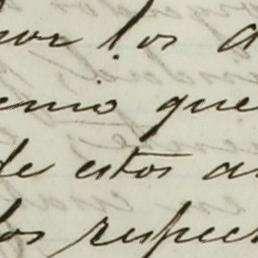 por los a
emio que
de estos a
los respec